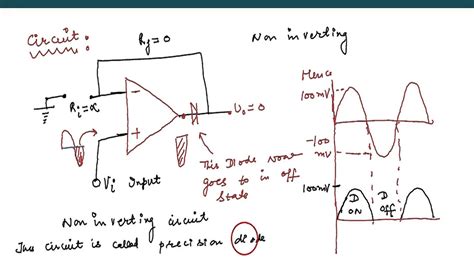 Circuit:
Rf=0
Non inverting
Ri=∝
−
+
Vo=0
Vi Input
This Diode none
goes to in off
state
Hence
100mV
-100
mV
100mV
D
ON
D
off
Non inverting circuit
This circuit is called precision diode